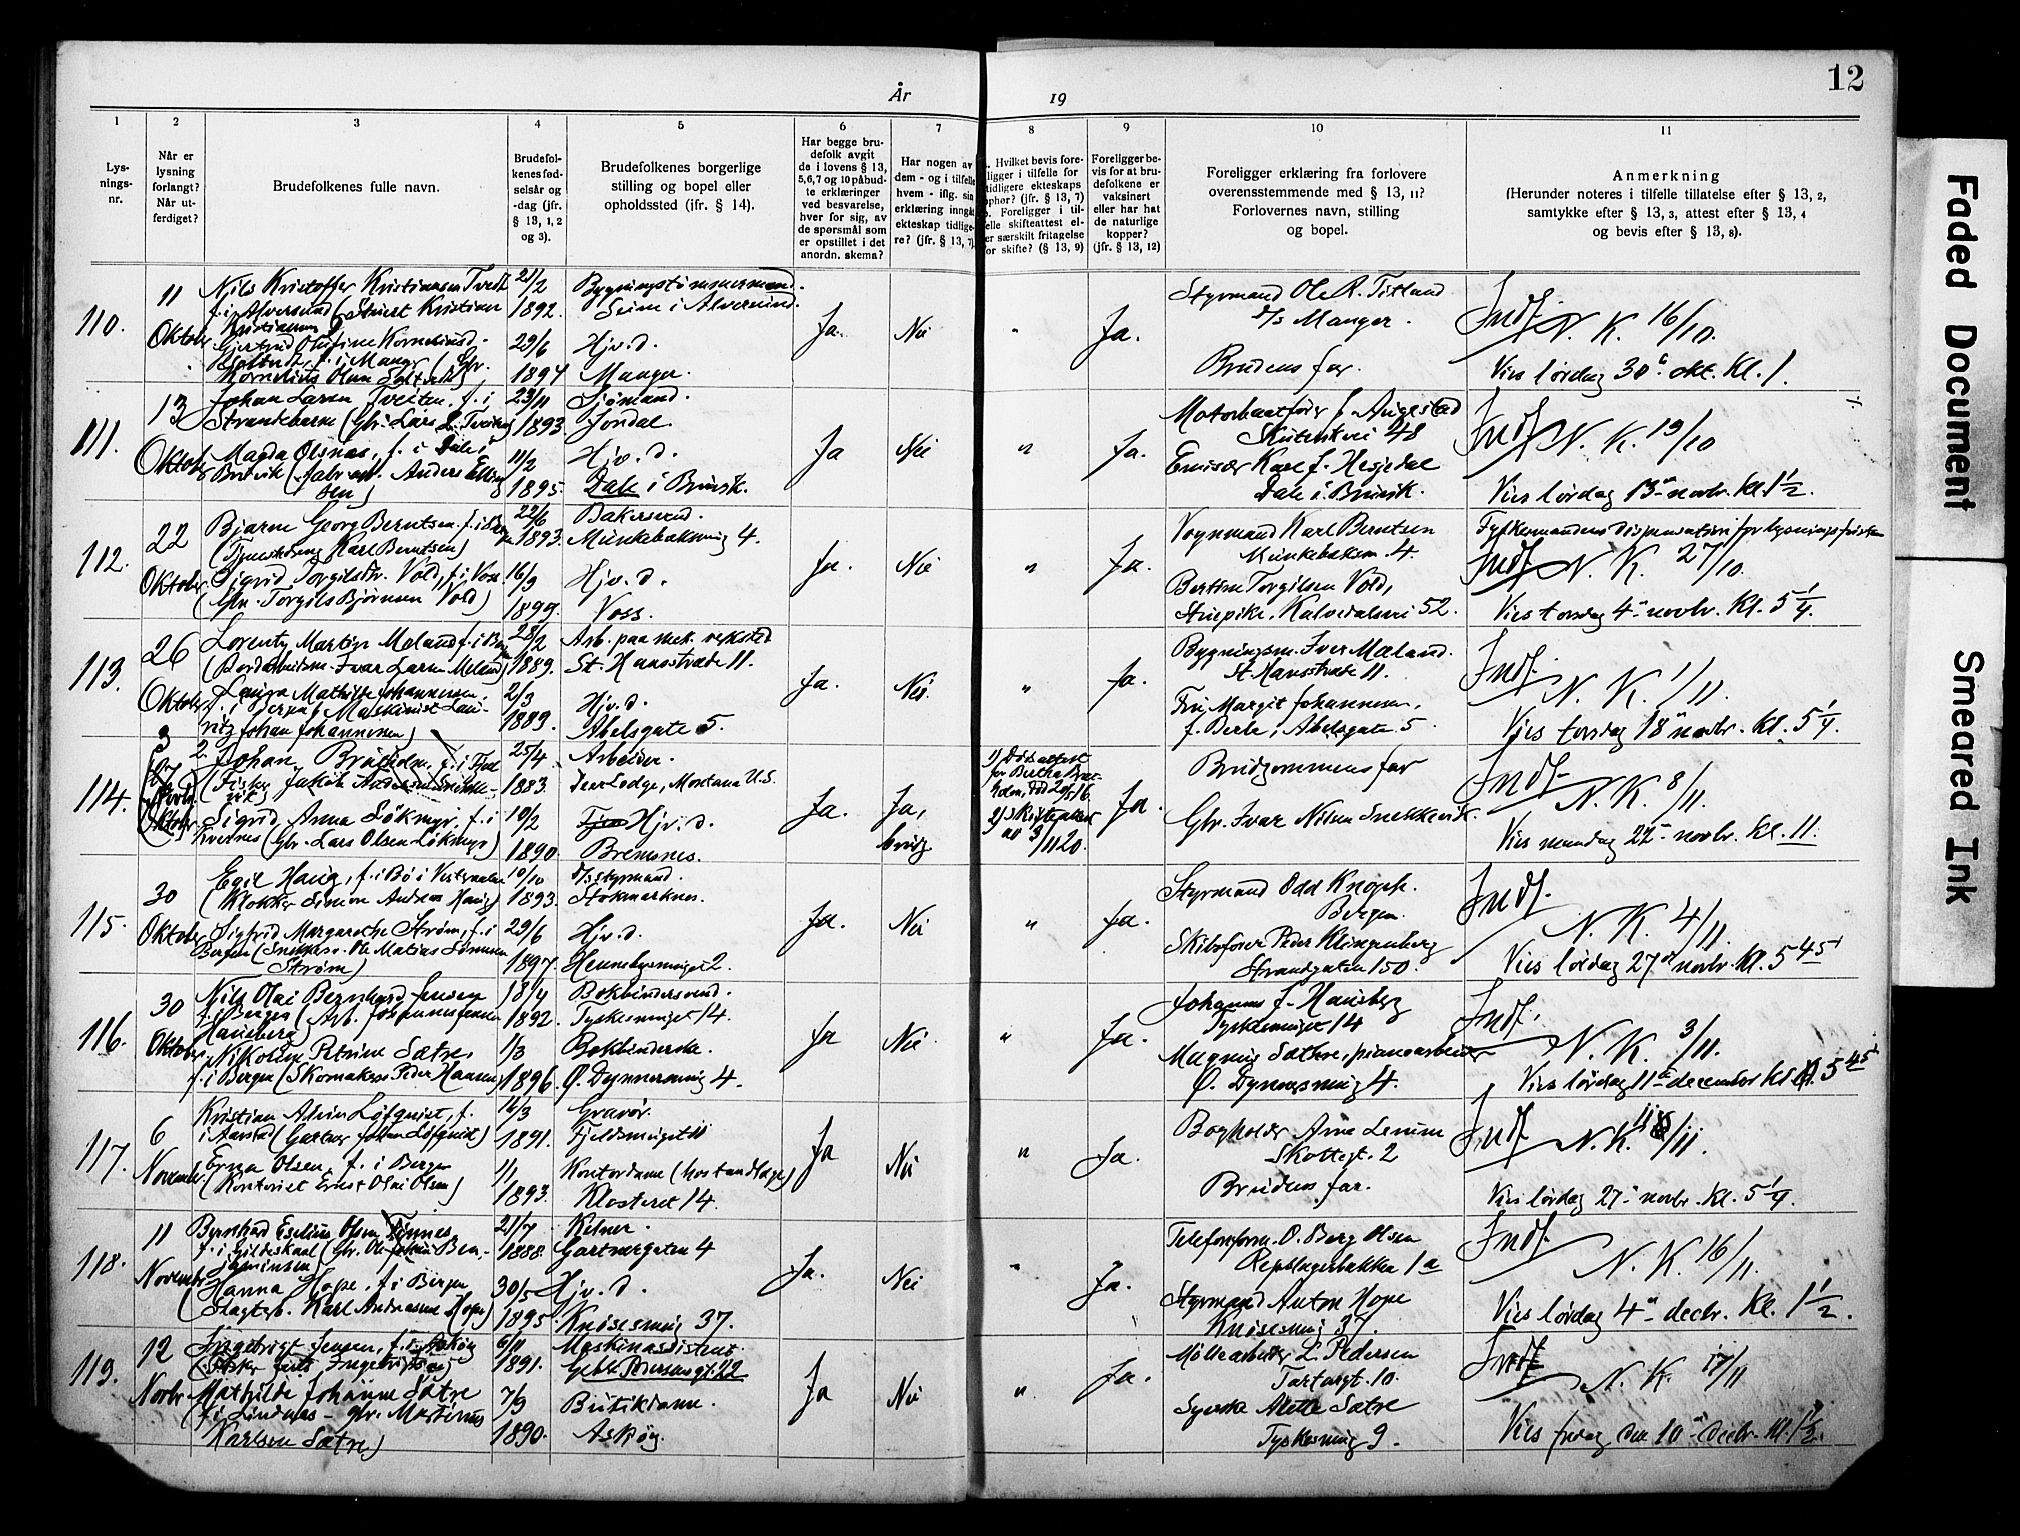 12
År 19
1
2
3
4
5
6
7
8
9
10
11
Lys-
nings-
nr.
Når er
lysning
forlangt?
Når ut-
ferdiget?
Brudefolkenes fulle navn.
Brudefol-
kenes fød-
selsår og
-dag (jfr.
§ 13, 1, 2
og 3).
Brudefolkenes borgerlige
stilling og bopel eller
opholdssted (jfr. § 14).
Har begge bru-
defolk avgit
de i lovens § 13,
5,6,7 og 10 påbud-
te erklæringer
ved besvarelse,
hver for sig, av
de spørsmål som
er opstillet i det
anordn. skema?
Har nogen av
dem - og i tilfelle
hvem - iflg. sin
erklæring inngått
ekteskap tidlige-
re? (jfr. § 13, 7)
Hvilket bevis fore-
ligger i tilfelle for
tidligere ekteskaps
ophør? (jfr. § 13, 7)
Foreligger i til-
felle skifteattest el-
ler særskilt fritagelse
for skifte? (§ 13, 9)
Foreligger be-
vis for at bru-
defolkene er
vaksinert
eller har hat
de naturlige
kopper?
(jfr. § 13, 12)
Foreligger erklæring fra forlovere
overensstemmende med § 13, 11?
Forlovernes navn, stilling
og bopel.
Anmerkning
(Herunder noteres i tilfelle tillatelse efter § 13, 2,
samtykke efter § 13, 3, attest efter § 13, 4
og bevis efter § 13, 8).
110.
11
Oktober
Nils Kristoffer Kristiansen Tveit
f. i Alversund ( Kristian
Kristiansen)
Gjertrud Olufine Kornelius d.
f. i Manger (Gbr.
Kornelius Olsen
21/2
1892.
29/6
1894
Bygningstømmermand.
Seim i Alversund.
Hj.v.d.
Manger.
Ja.
Nei
"
Ja.
Styrmand Ole R. Titland
s/s Manger.
Brudens far.
Indf.
N. K. 16/10.
Vies lørdag 30te okt. Kl. 1.
111.
13
Oktober
Johan Larsen Tveiten, f. i
Strandebarm (Gbr. Lars L. Tveiten)
Magda Olsnes, f. i Dale i
Bruvik (Fabr.arb. Anders Elling-
sen)
23/11
1893
11/2
1895.
Sjømand.
Jondal.
Hj.v.d.
Dale i Bruvik.
Ja
Nei
"
Ja.
Motorbaatfører J. Augestad
Skuteviksvei 48
Emisær Karl J. Hesjedal
Dale i Bruvik.
Indf.
N. K. 19/10
Vies lørdag 13de novbr. kl. 1½.
112.
22
Oktober
Bjarne Georg Berntsen f. i Ber-
gen
Karl Berntsen)
Sigrid Torgilsdtr. Vold, f. i Voss
(Gbr. Torgils Bjørnsen Vold)
22/6
1893.
16/9
1899.
Bakersvend.
Munkebaksmug 4.
Hj.v.d.
Voss.
Ja.
Nei
"
Ja.
Vognmand Karl Berntsen
Munkebaksm. 4.
Bertine Torgilsen Vold,
Stuepike, Kalvedalsvei 52.
Fylkesmandens dispensation for lysningsfristen
Indf. N. K. 27/10.
Vies torsdag 4de novbr. Kl. 5¼.
113.
26
Oktober
Lorentz Martin Meland f. i Bergen
( Ivar Larsen Meland)
Laura Mathilde Johannesen,
f. i Bergen (Maskinist Lau-
ritz Johan Johannesen)
28/2
1889.
2/3
1889.
Arb. paa mek. verksted
St. Hansstræde 11.
Hj.v.d.
Abelsgate 5.
Ja.
Nei.
"
Ja.
Bygningsm. Iver Mæland.
St. Hansstræde 11.
Fru Margit Johannesen,
f. Berle, i Abelsgate 5.
Indf.
N. K. 1/11.
Vies torsdag 18de novbr. Kl. 5¼.
114.
2.
Novbr.
Oktober.
Johan Bræholm, f. i
(Fisker Jakob Andersen
vik)
Sigrid Anna Løkmyr, f. i
Kvernes (Gbr. Lars Olsen Løkmyr)
25/4
1883.
10/2
1890
Arbeider.
Deer Lodge, Montana U.S.
Hj.v.d.
Bremsnes.
Ja.
Ja,
brudg.
1) Dødsattest
for Bertha Bræ-
holm, død 20/5 16.
2) Skifteattest
av 3/11 20.
Ja.
Brudgommens far
Gbr. Ivar Nilsen Snekkevik.
Indf.
N. K. 8/11.
Vies mandag 22de novbr. kl. 11.
115.
30
Oktober
Egil Haug, f. i Bø i Vesteraalen
(Klokker Simon Andreas Haug)
Sigfrid Margarethe Strøm, f. i
Bergen (Snekkers. Ole Matias Sømme
Strøm)
10/10
1893.
29/6
1897.
d/s styrmand.
Stokmarknes.
Hj.v.d.
Hennebysmuget 2.
Ja.
Nei
"
Ja.
Styrmand Odd Knoph.
Bergen.
Skibsfører Peder Klingenberg
Strandgaten 150.
Indf.
N. K. 4/11.
Vies lørdag 27de novbr. Kl. 5 45
116.
30
Oktober
Nils Olai Bernhard Jensen
f. i Bergen (Arb. Johannes Jensen
Hauseberg)
Nikoline Petrine Sætre,
f. i Bergen (Skomaker Peder Hansen)
18/4
1892.
1/3
1896.
Bokbindersvend.
Tyskesmuget 14.
Bokbinderske.
Ø. Dynnersmug 4.
Ja
Nei
"
Ja.
Johannes J. Hausberg
Tyskesmuget 14
Magnus Sæthre, pianoarbeider
Ø. Dynnersmug 4.
Indf.
N. K. 3/11.
Vies lørdag 11te december kl. 5 45
117.
6
November
Kristian Alvin Løfquist, f.
i Aarstad (Gartner Johan Løfquist)
Erna Olsen, f. i Bergen
(Kontorist Ernst Olai Olsen)
16/3
1891.
11/1
1893.
Gravør.
Fjeldsmuget 11
Kontordame (hos tandlæge)
Klosteret 14.
Ja
Nei
"
Ja.
Bogholder Arne Lerum
Skottegt. 2
Brudens far.
Indf.
N. K. /11.
Vies lørdag 27de novbr. kl. 5¼.
118.
11
November
Bernhard Eselius Olsen
f. i Gildeskaal (Gbr. Ole Ben-
jaminsen)
Hanna Hope, f. i Bergen
(Slagterb. Karl Andreasen Hope)
21/7
1888.
30/5
1895.
Kelner.
Gartnergaten 4
Hj.v.d.
Knøsesmug 37.
Ja.
Nei
"
Ja.
Telefonform. O. Berg Olsen
Repslagerbakken 1a
Styrmand Anton Hope
Knøsesmug 37.
Indf.
N. K. 16/11.
Vies lørdag 4de decbr. Kl. 1½.
119.
12
Novbr
Ingebrigt Jensen, f. i Askøy
(Fisker Jens Ingebrigtsen)
Mathilde Johanne Sætre
f. i Lindaas - gbr. Martinus
Karlsen Sætre)
6/11
1891.
7/9
1890.
Maskinassistent
Gjeble Pedersensgt. 22
Butikdame.
Askøy.
Ja
Nei
"
Ja.
Møllearbeider L. Pedersen
Tartargt. 10.
Syerske Alette Sætre
Tyskesmug 9.
Indf.
N. K. 17/11
Vies fredag den 10de decbr. Kl. 1½.
Faded Document
Smeared Ink